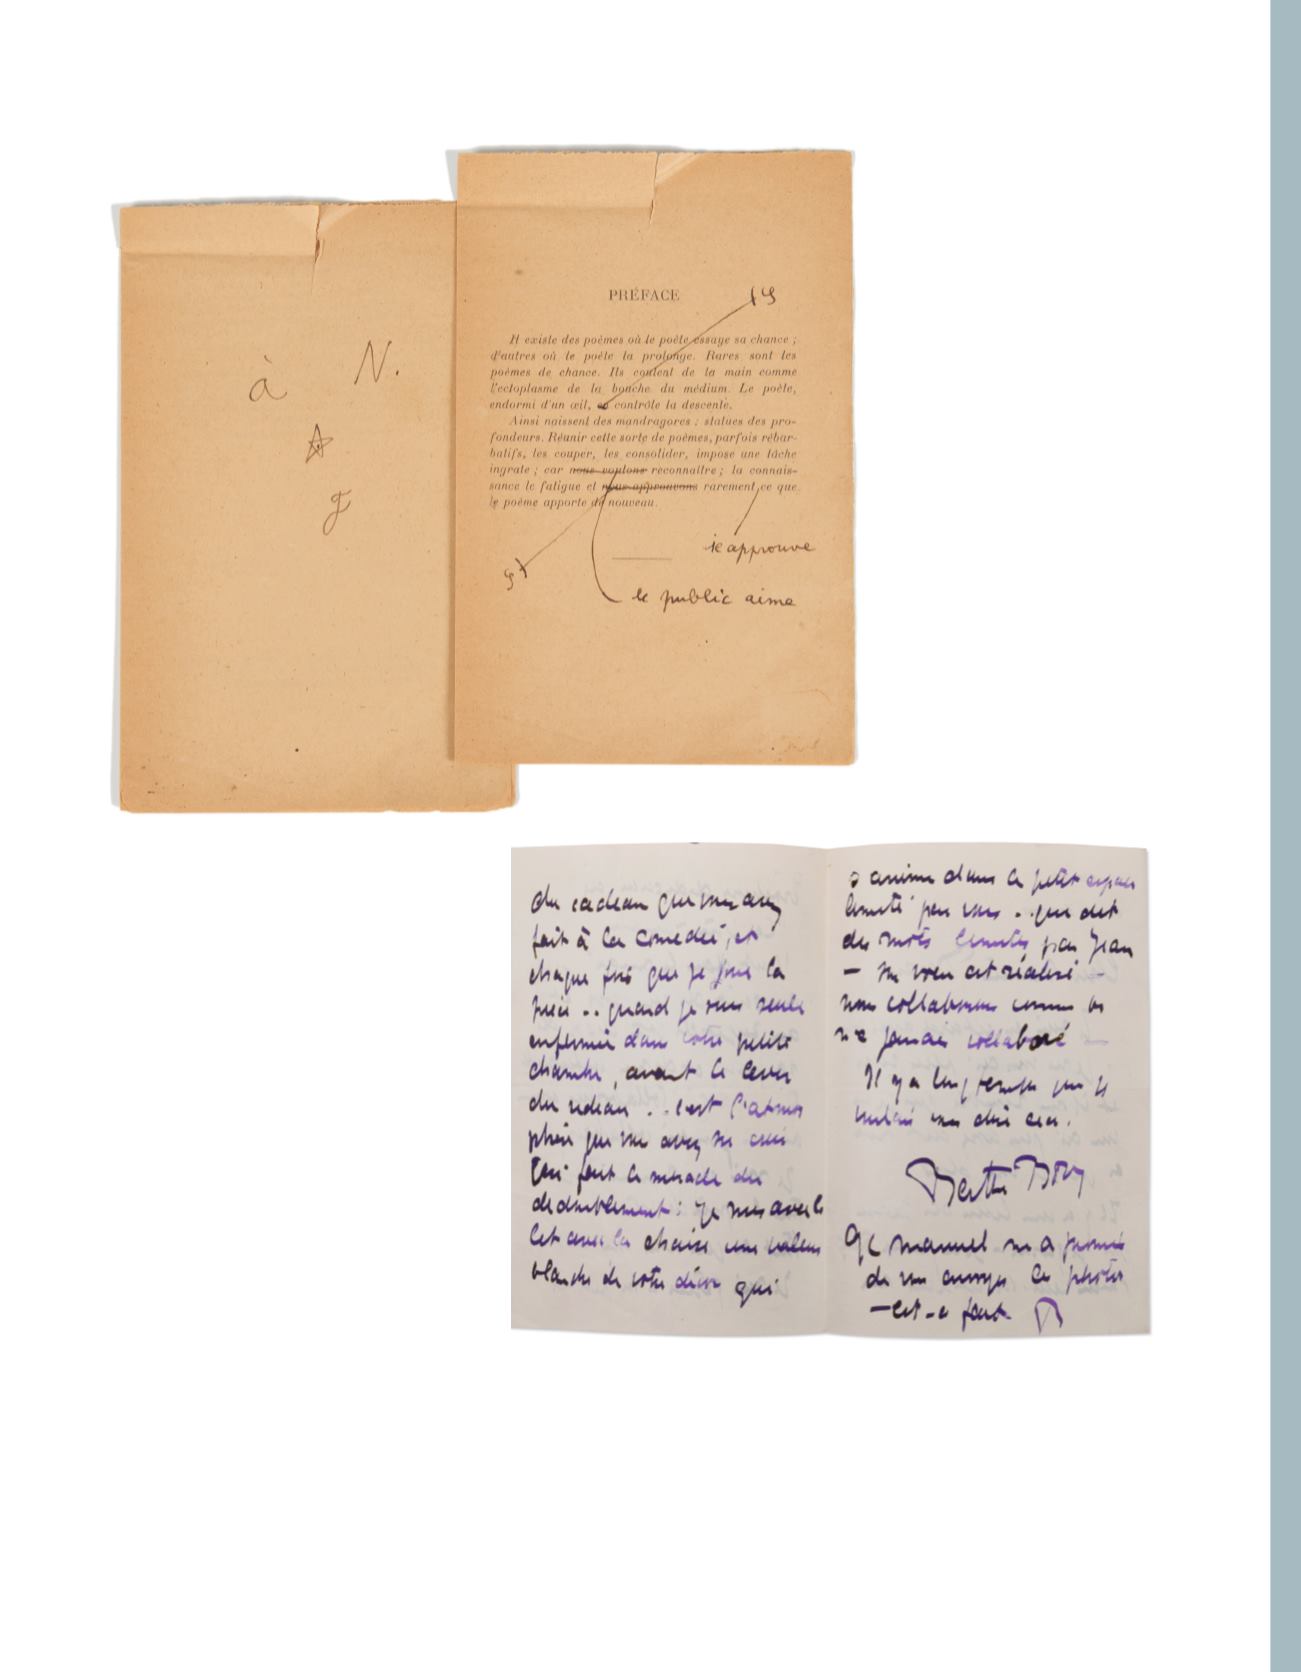 à N.
J
PRÉFACE
Il existe des poèmes où le poète essaye sa chance ;
d'autres où le poète la prolonge. Rares sont les
poèmes de chance. Ils coulent de la main comme
l'ectoplasme de la bouche du médium. Le poète,
endormi d'un œil, en contrôle la descente.
Ainsi naissent des mandragores : statues des pro-
fondeurs. Réunir cette sorte de poèmes, parfois rébar-
batifs, les couper, les consolider, impose une tâche
ingrate ; car nous voulons reconnaître ; la connais-
sance le fatigue et nous approuvons rarement ce que
le poème apporte de nouveau.
je approuve
le public aime
du cadeau que vous avez
fait à la comédie, et
chaque fois que je joue la
pièce .. quand je suis seule
enfermée dans votre petite
chambre, avant le lever
du rideau .. c'est l'atmos
phère que vous avez su créer
qui fait le miracle du
dédoublement : je suis avec le
lit avec la chaise une valeur
blanche de votre décor qui
s'anime dans le petit espace
limité par vous .. qui dit
des mots limités par Jean
– mon vœu est réalisé –
nous collaborons comme on
n'a jamais collaboré –
Il y a longtemps que je
voulais vous dire ceci.
Berthe Bovy
manuel m'a promis
de vous envoyer les photos
– est-ce fait B